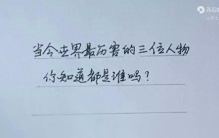 当今世界最厉害的三位人物
你知道都是谁吗？